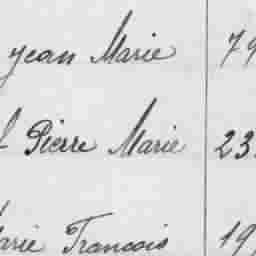 Jean Marie 79
Pierre Marie 23
Marie Francois 19